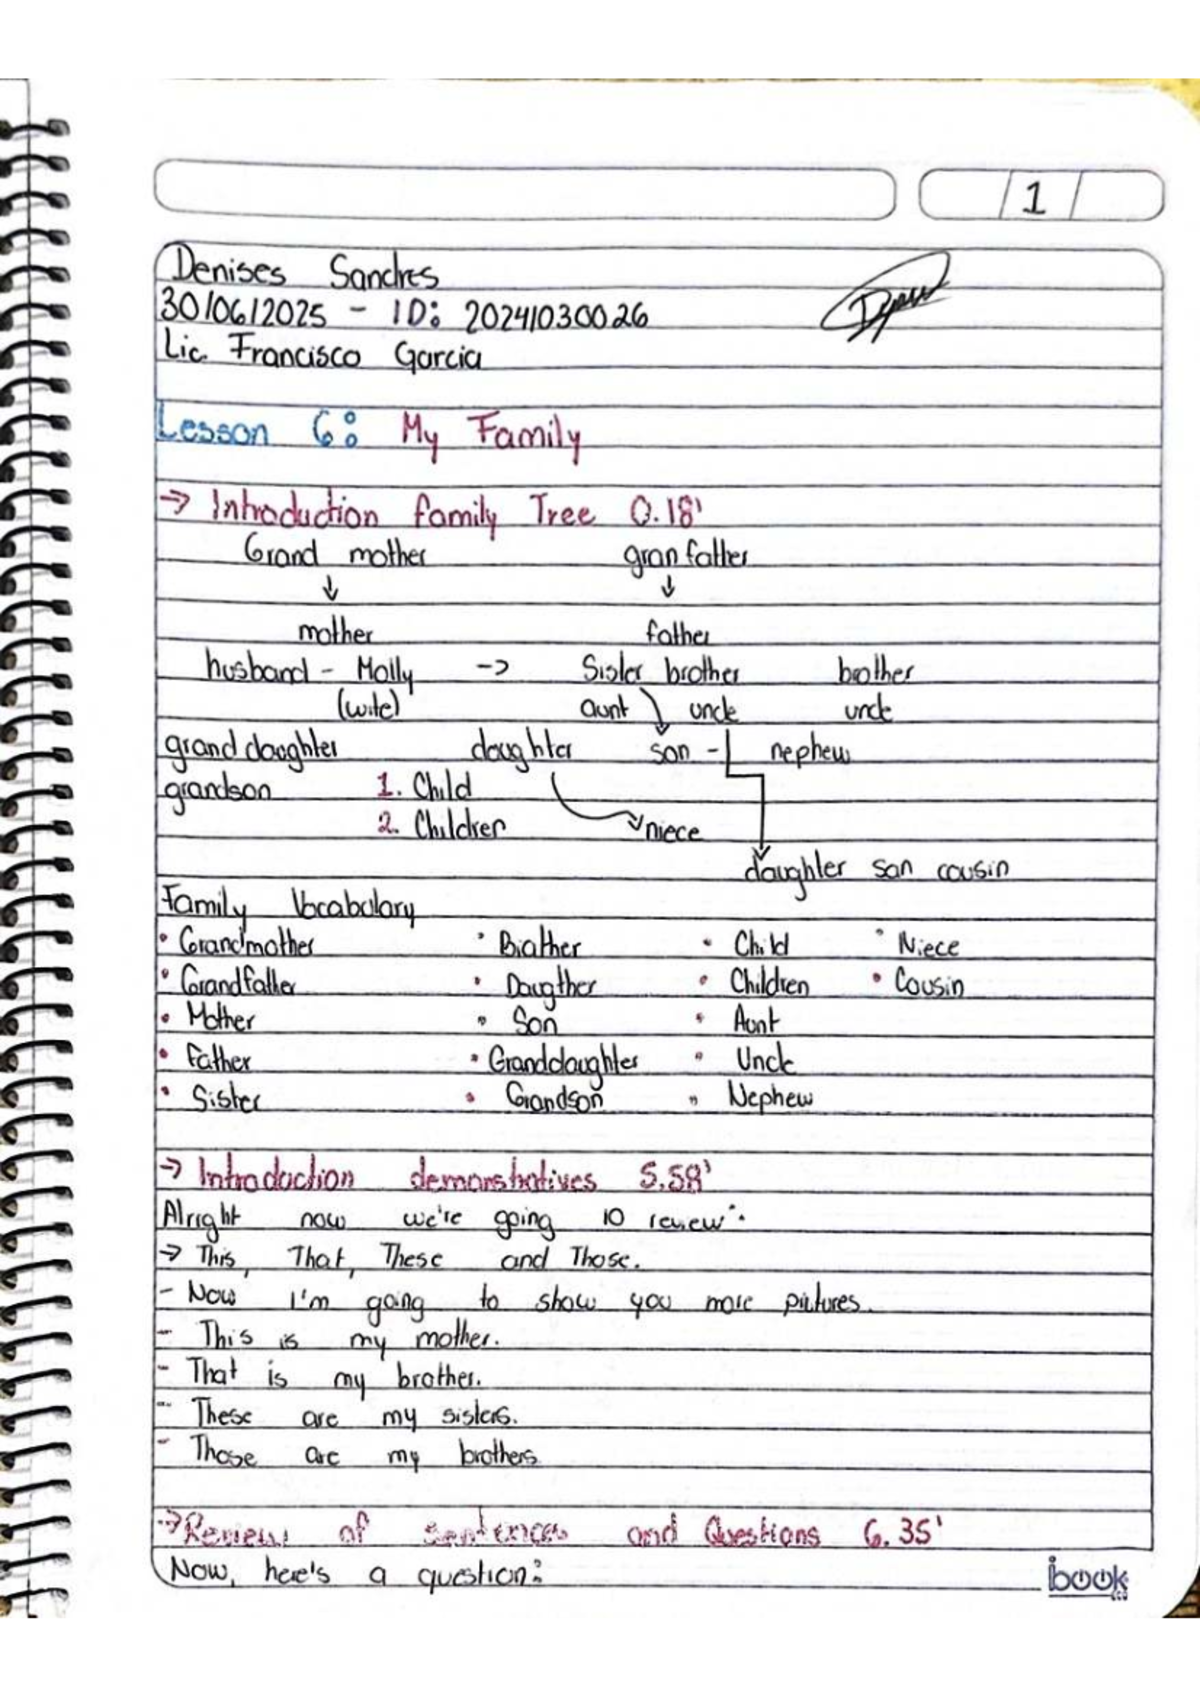 1
Denises Sandres
30/06/2025 - ID: 20241030026
Lic. Francisco Garcia
Lesson 6: My Family
→ Introduction family Tree 0.18'
Grand mother granfather
↓ ↓
mother father
husband - Molly -> Sister brother brother
(wife) aunt uncle uncle
granddaughter daughter son - nephew
grandson 1. Child
2. Children niece
daughter son cousin
Family Vocabulary
• Grandmother • Brother • Child • Niece
• Grandfather • Daugther • Children • Cousin
• Mother • Son • Aunt
• Father • Granddaughter • Uncle
• Sister • Grandson • Nephew
→ Introduction demonstratives 5.58'
Alright now we're going to review:
→ This, That, These and Those.
- Now I'm going to show you more pictures.
- This is my mother.
- That is my brother.
- These are my sisters.
- Those are my brothers
→ Review of sentences and Questions 6.35'
Now, here's a question:
ibook